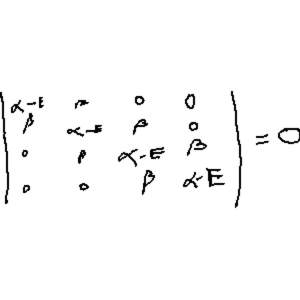 | α-E β 0 0 |
| β α-E β 0 | = 0
| 0 β α-E β |
| 0 0 β α-E |